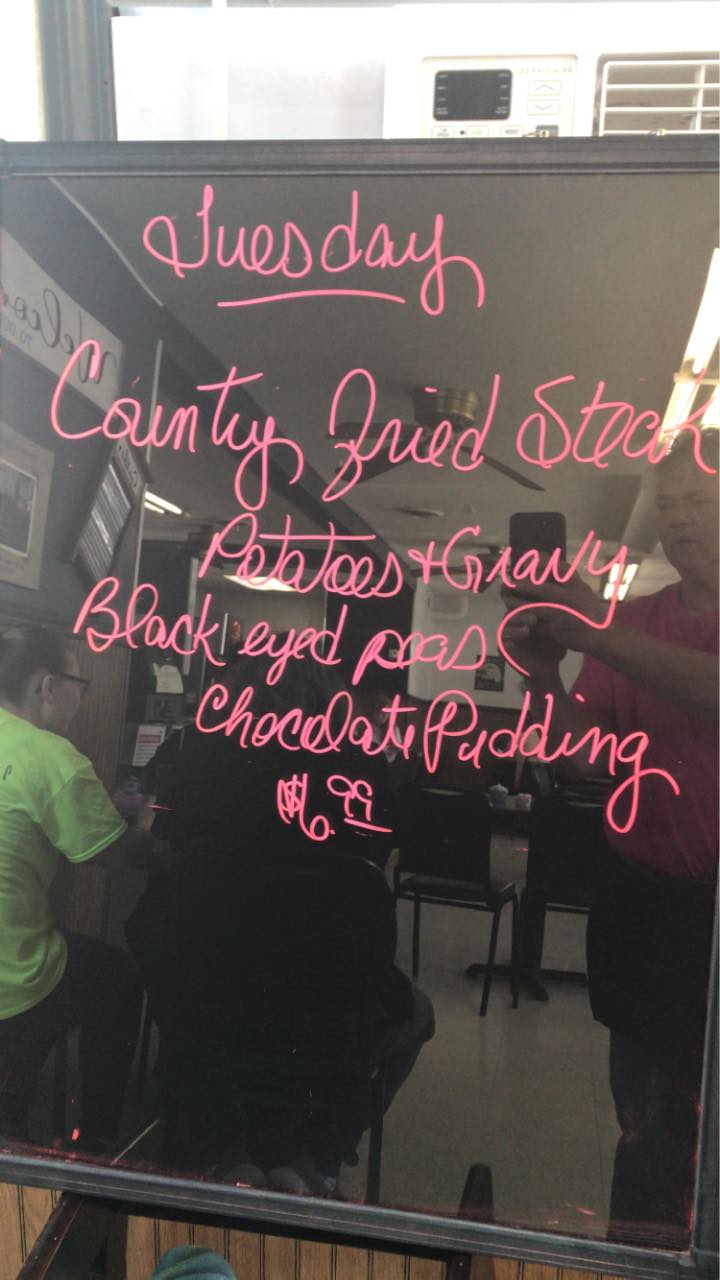 Tuesday
County Fried Steak
Potatoes & Gravy
Black eyed peas
Chocolate Pudding
$6.99
Welco
TO OU